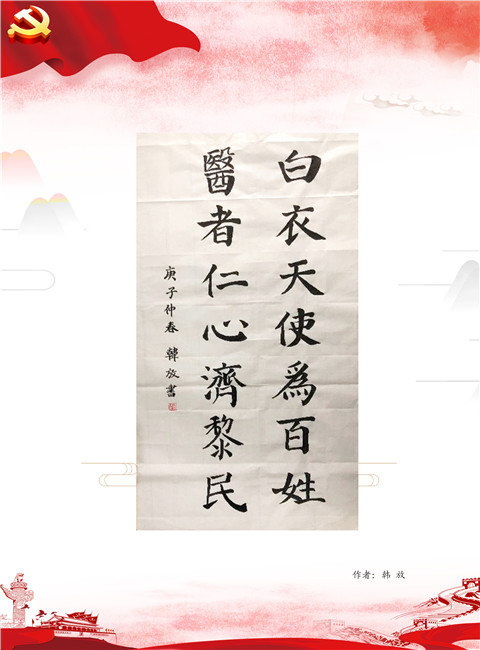 白衣天使爲百姓
醫者仁心濟黎民
庚子仲春 韓放書
作者：韩 放